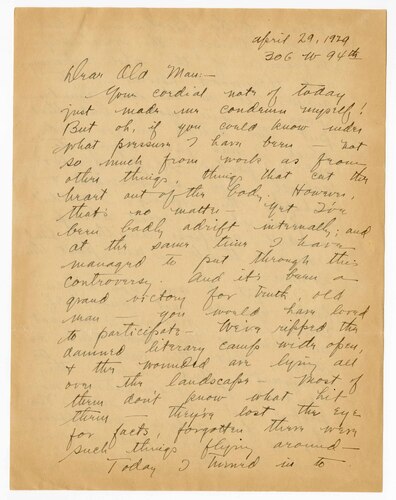 April 29, 1929
306 W 94th
Dear Old Man:-
Your cordial note of today
just made me condemn myself!
But oh, if you could know under
what pressure I have been — not
so much from work as from
other things; things that eat the
heart out of the body. However,
that's no matter — Yet I've
been badly adrift internally; and
at the same time I have
managed to put through this
controversy. And it's been a
grand victory for truth, old
man — you would have loved
to participate — We've ripped the
damned literary camps wide open,
& the wounded are lying all
over the landscape — most of
them don't know what hit
them — they've lost the eye
for facts, forgotten there were
such things flying around —
Today I turned in to